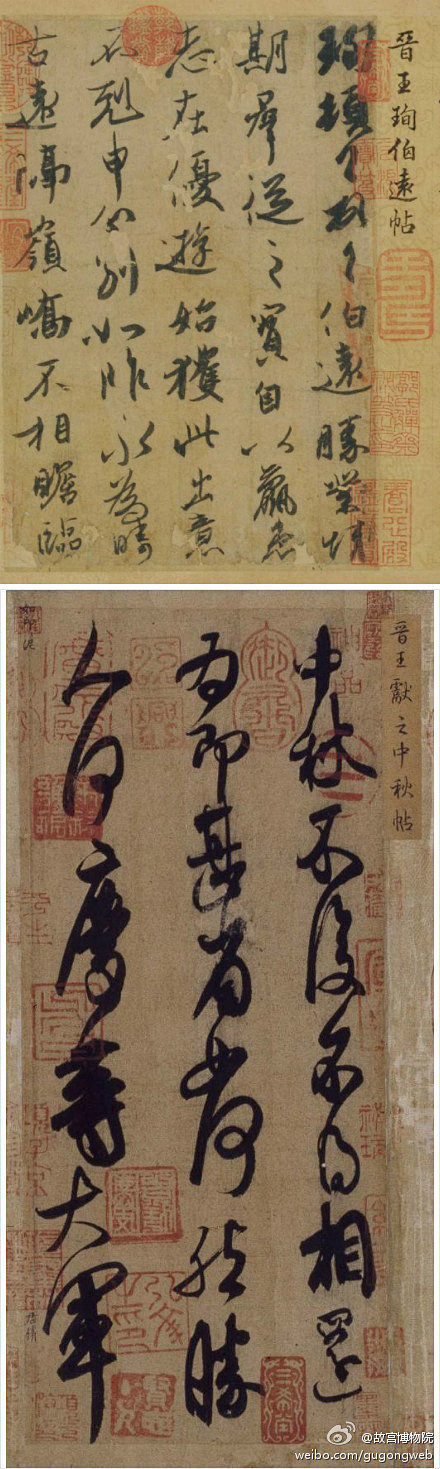 晉王珣伯遠帖
珣頓首頓首伯遠勝業情
期羣從之寶自以羸患
志在優遊始獲此出意
不剋申分別如昨永為疇
古遠隔嶺嶠不相瞻臨
晉王獻之中秋帖
中秋不復不得相還
為即甚省如何然勝
人何慶等大軍
@故宫博物院
weibo.com/gugongweb